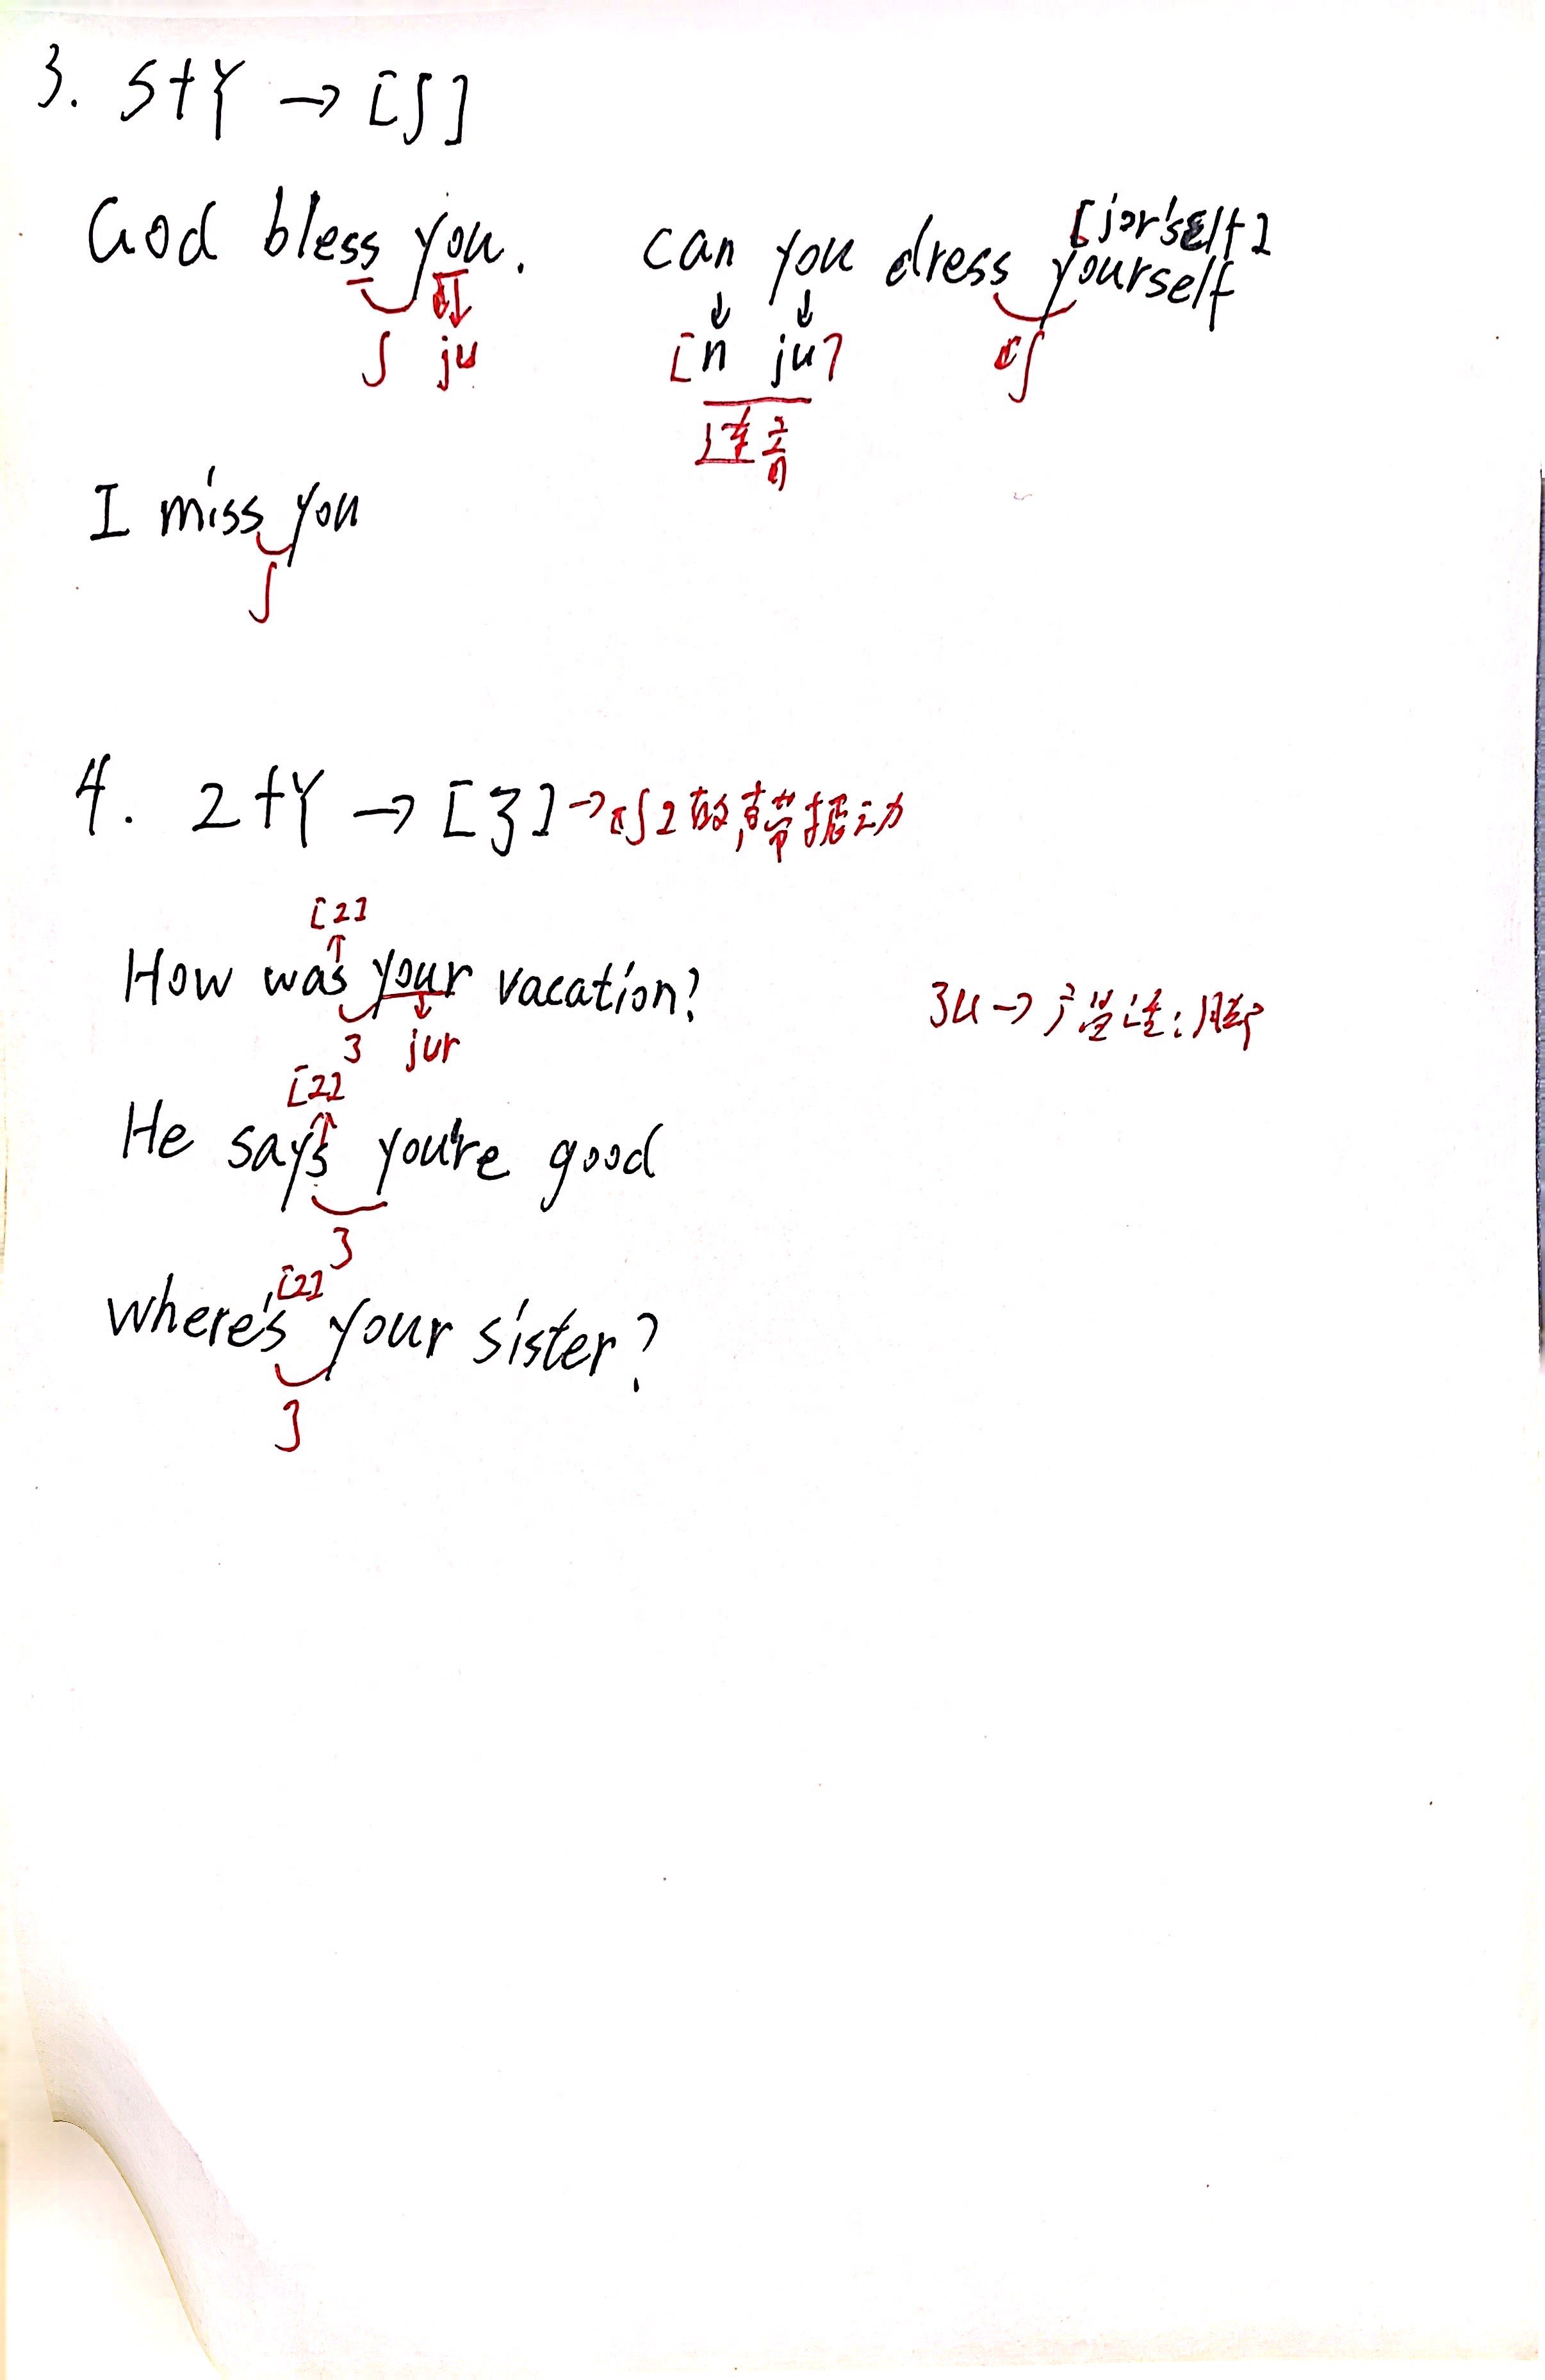 3. S+Y → [ʃ]
God bless you. can you dress yourself [jər'sɛlf]
ʃ ju [n ju] ʃ
连音
I miss you
ʃ
4. Z+Y → [ʒ] → 声带振动
[z]
How was your vacation?
ʒ jur
[z]
He says you're good
ʒ
[z]
where's your sister?
ʒ